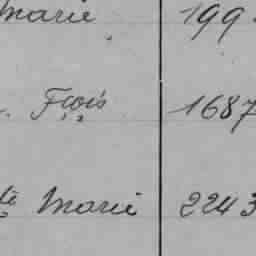 Marie 199
Frois 1687
te Marie 2243